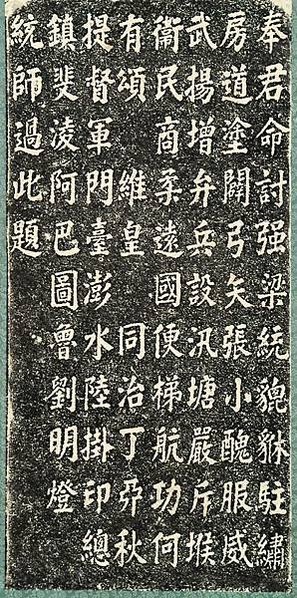 奉君命討强梁統貔貅駐繡
房道塗闢弓矢張小醜服威
武揚增弁兵設汛塘嚴斥堠
衞民商柔遠國便梯航功何
有頌 維皇 同治丁丣秋
提督軍門臺澎水陸掛印總
鎮斐凌阿巴圖魯劉明燈
統師過此題